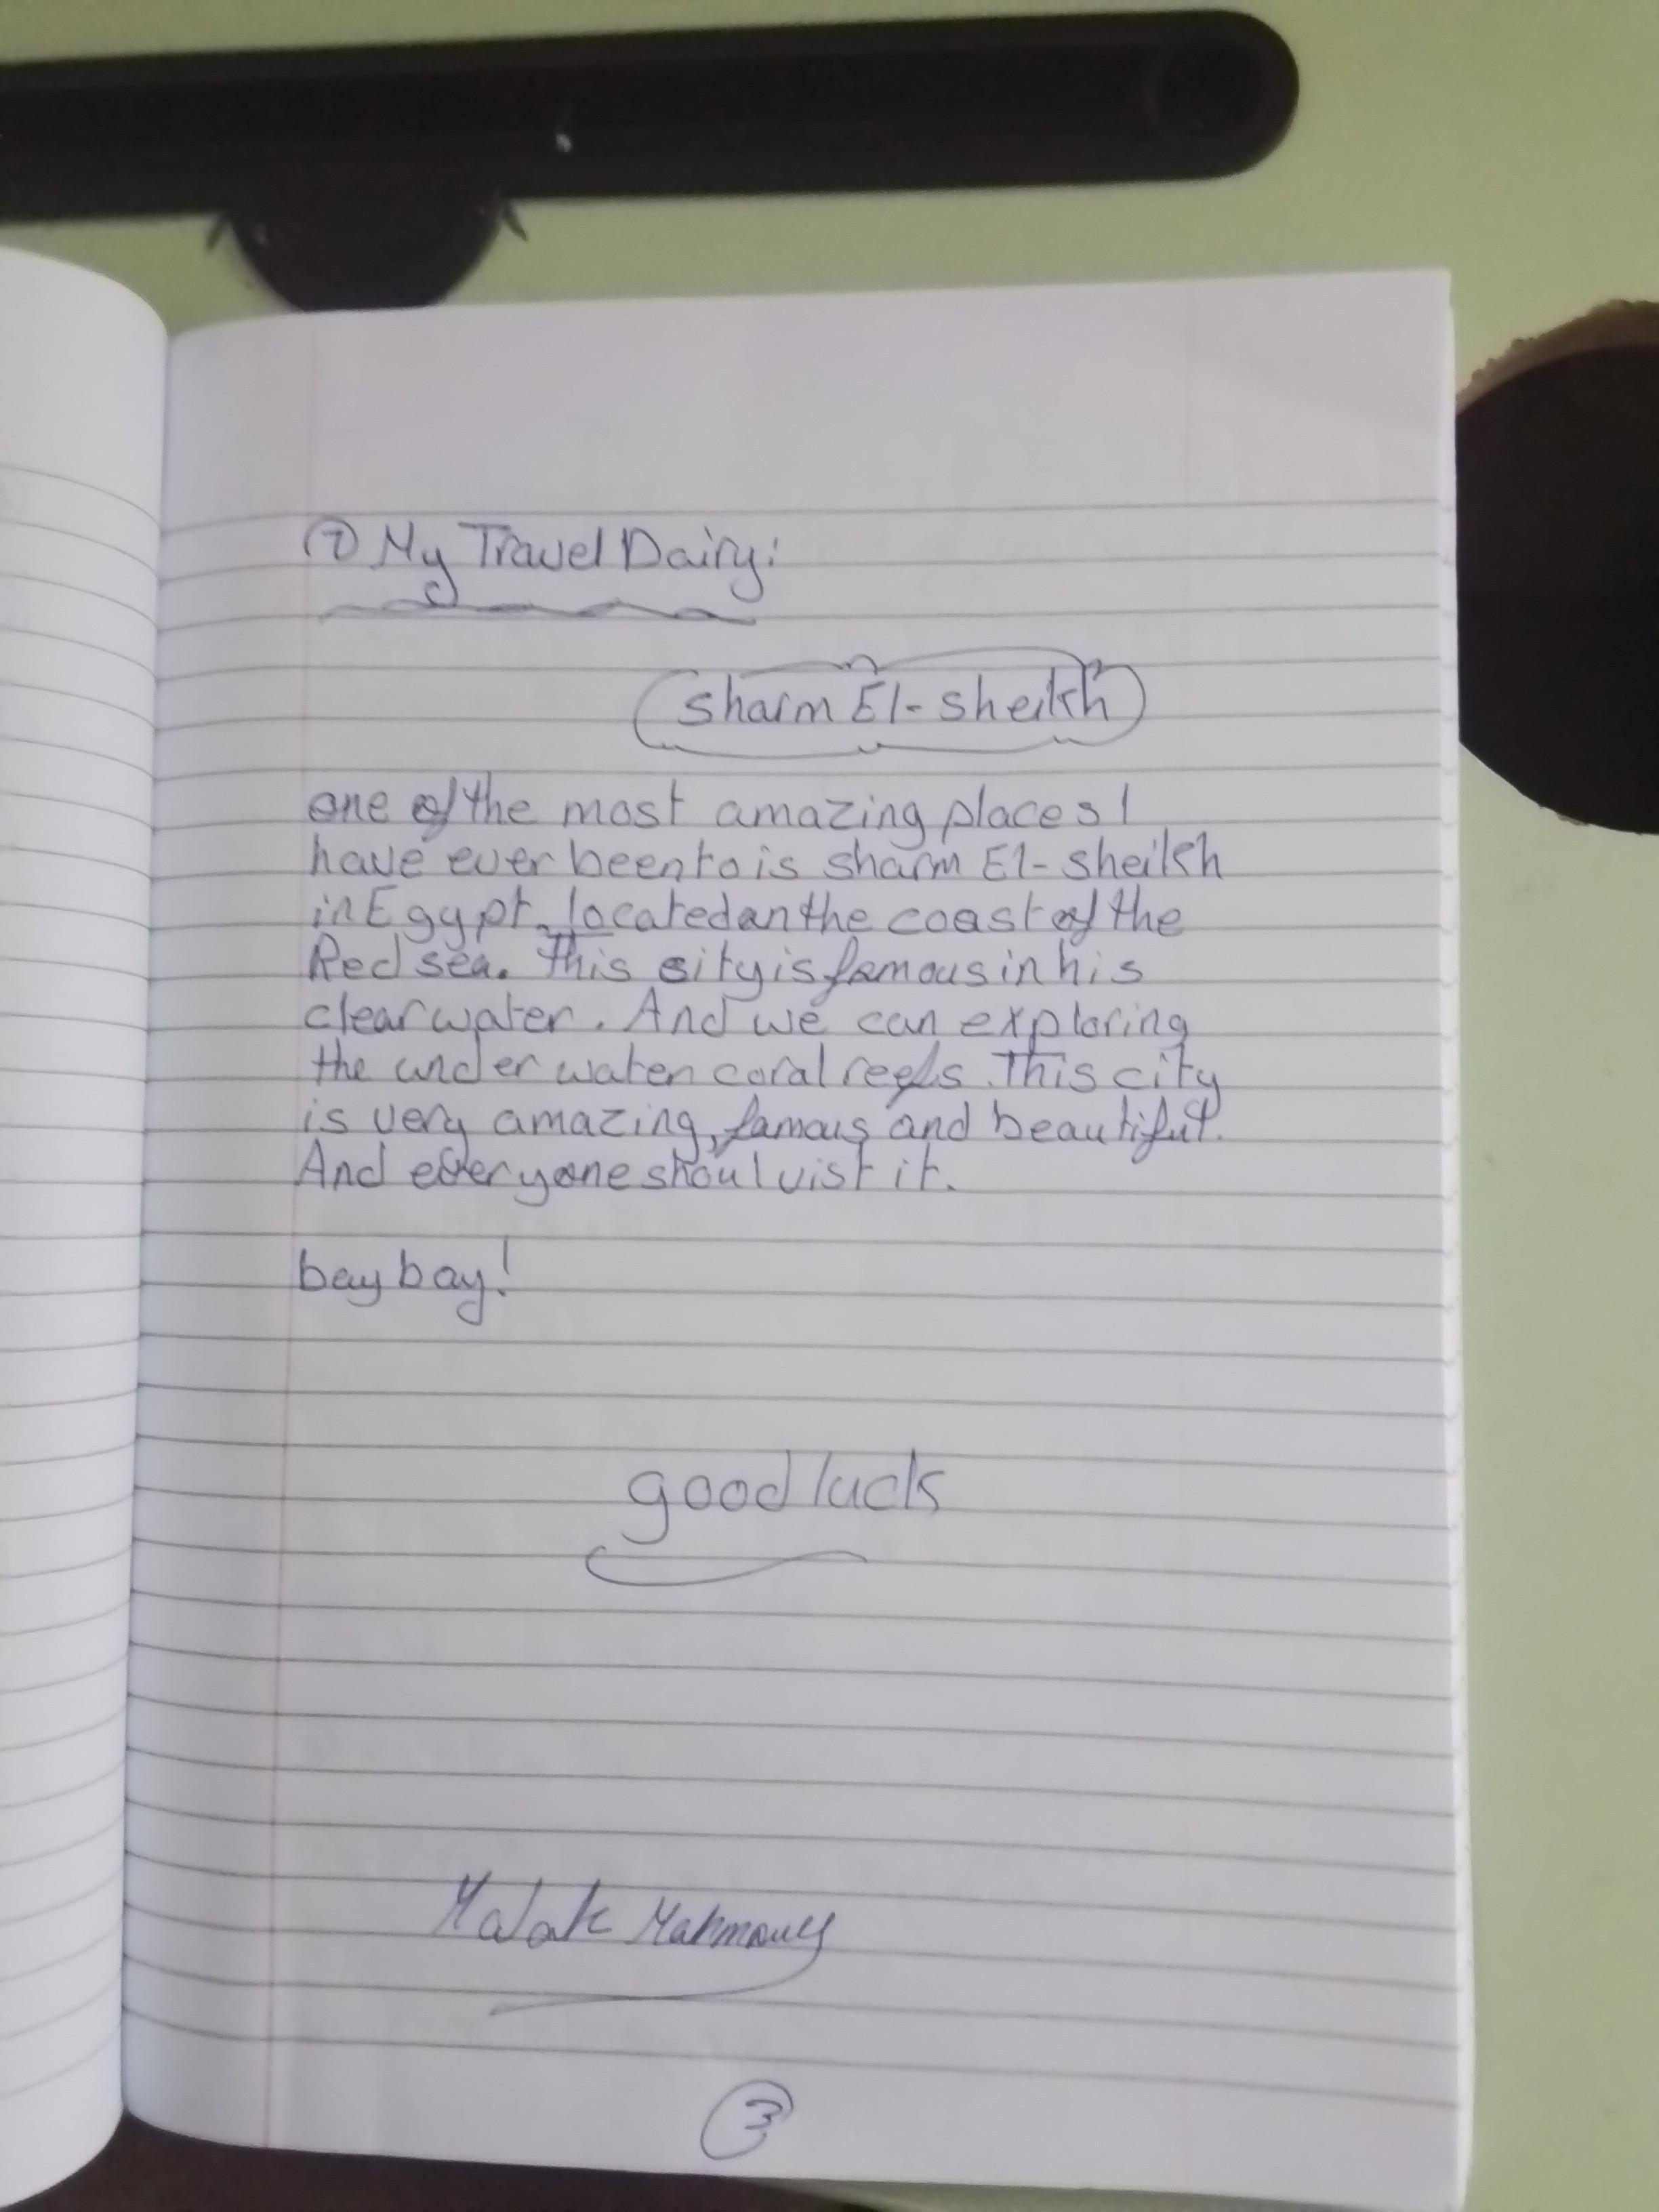 ⑦ My Travel Dairy:
Sharm El-sheikh
one of the most amazing places I
have ever been to is sharm El-sheikh
in Egypt, located an the coast of the
Red sea. This city is famous in his
clear water. And we can exploring
the under water coral reefs. This city
is very amazing, famous and beautiful.
And everyone shoul vist it.
bay bay!
good luck
Malak Mahmoud
3